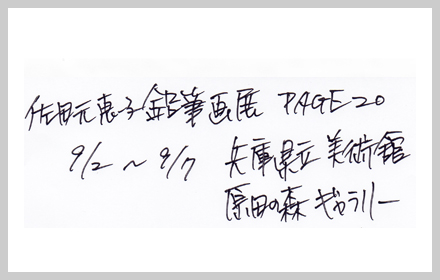 佐田元恵子鉛筆画展 PAGE-20
9/2 〜 9/7 兵庫県立美術館
原田の森ギャラリー